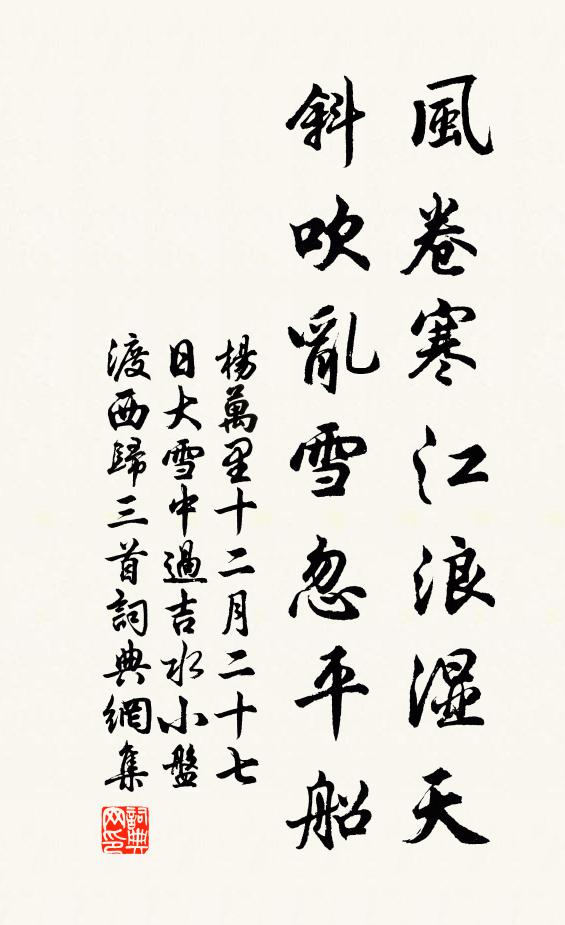 風卷寒江浪濕天
斜吹亂雪忽平船
楊萬里十二月二十七
日大雪中過吉水小盤
渡西歸三首詞典網集
詞典网印